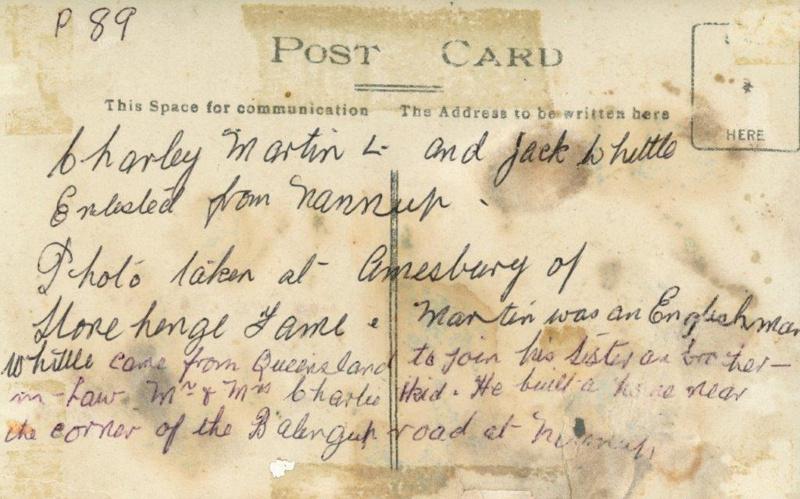 P 89
POST CARD
This Space for communication The Address to be written here
HERE
Charley Martin L- and Jack Whittle
Enlisted from Nannup.
Photo taken at Amesbury of
Stone henge Fame. Martin was an Englishman
Whittle came from Queensland to join his sister an brother-
in-Law Mr & Mrs Charlie He built a near
the corner of the Balingup road at Nannup